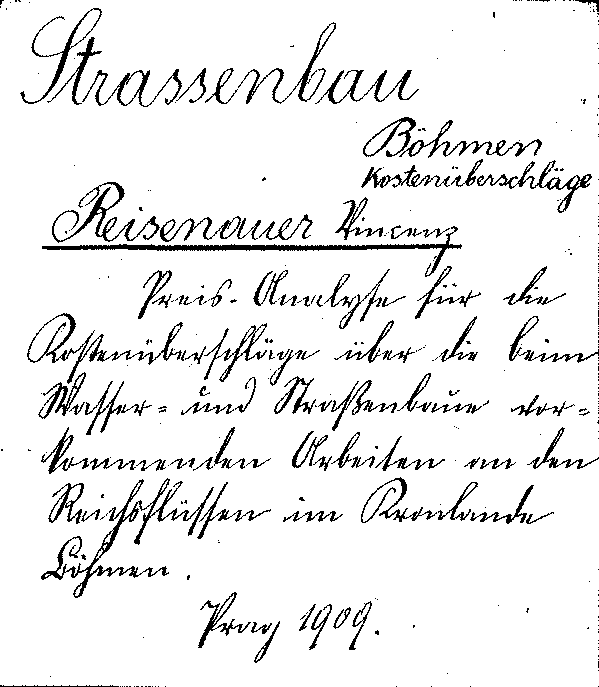 Strassenbau
Böhmen
Kostenüberschläge
Reisenauer Vincenz
Preis-Analyse für die
Kostenüberschläge über die beim
Wasser- und Straßenbaue vor-
kommenden Arbeiten an den
Reichsflüssen im Kronlande
Böhmen.
Prag 1909.